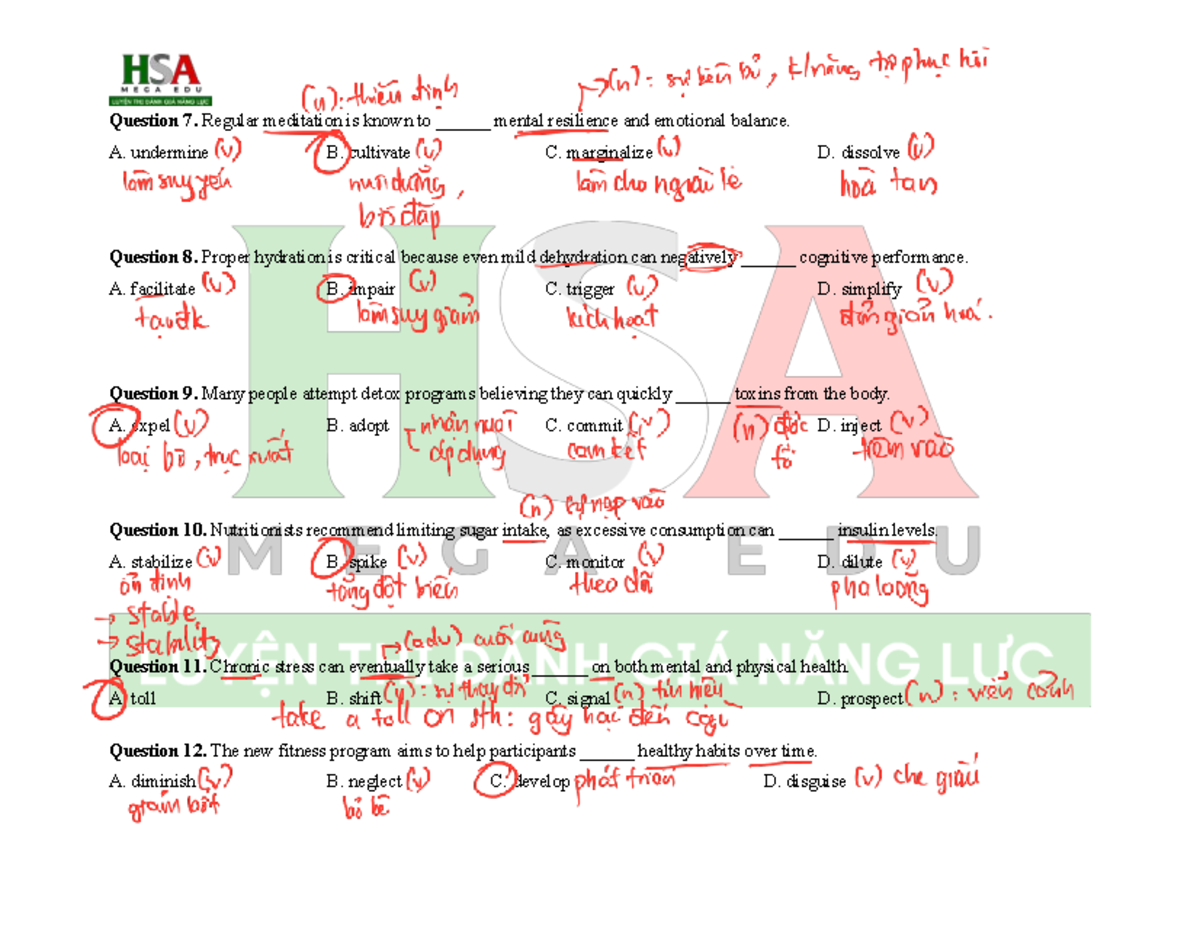 HSA
MEGA EDU
LUYỆN THI ĐÁNH GIÁ NĂNG LỰC
(n): thiền định
(n): sự kiên bỉ, k/năng tự phục hồi
Question 7. Regular meditation is known to ______ mental resilience and emotional balance.
A. undermine (v) B. cultivate (v) C. marginalize (v) D. dissolve (v)
làm suy yếu nuôi dưỡng, làm cho ngoài lề hoà tan
bồi đắp
Question 8. Proper hydration is critical because even mild dehydration can negatively ______ cognitive performance.
A. facilitate (v) B. impair (v) C. trigger (v) D. simplify (v)
tạo đk làm suy giảm kích hoạt đơn giản hoá.
Question 9. Many people attempt detox programs believing they can quickly ______ toxins from the body.
A. expel (v) B. adopt nhận nuôi C. commit (v) (n) độc D. inject (v)
loại bỏ, trục xuất áp dụng cam kết tố tiêm vào
(n) sự nạp vào
Question 10. Nutritionists recommend limiting sugar intake, as excessive consumption can ______ insulin levels.
MEGA EDU
A. stabilize (v) B. spike (v) C. monitor (v) D. dilute (v)
ổn định tăng đột biến theo dõi pha loãng
→ stable
→ stability (adv) cuối cùng
LUYỆN THI ĐÁNH GIÁ NĂNG LỰC
Question 11. Chronic stress can eventually take a serious ______ on both mental and physical health.
A. toll B. shift (v): sự thay đổi C. signal (n) tín hiệu D. prospect (n): viễn cảnh
take a toll on sth: gây hại đến cái gì
Question 12. The new fitness program aims to help participants ______ healthy habits over time.
A. diminish (v) B. neglect (v) C. develop phát triển D. disguise (v) che giấu
giảm bớt bỏ bê